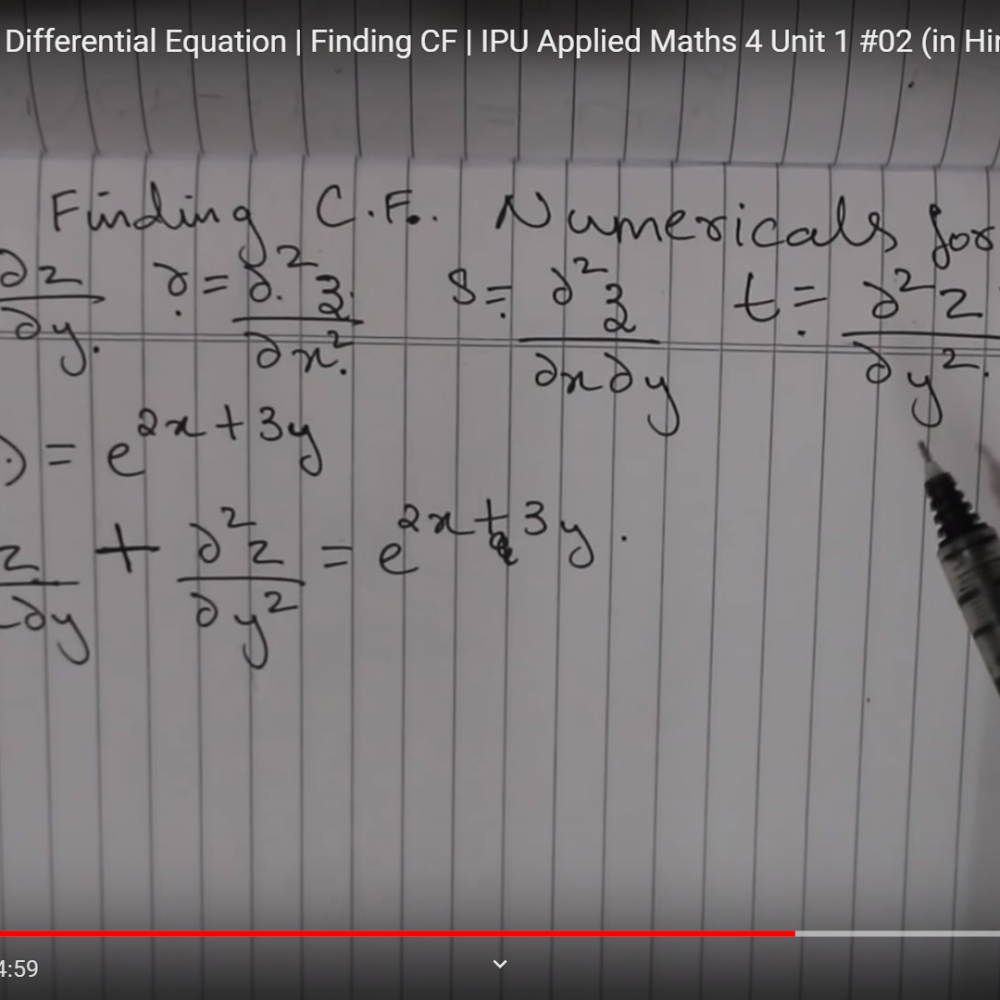 Differential Equation | Finding CF | IPU Applied Maths 4 Unit 1 #02 (in Hin
Finding C.F. Numericals for
∂z/∂y. r = ∂²z/∂x². s = ∂²z/∂x∂y t = ∂²z/∂y².
) = e^{2x+3y}
z/∂y + ∂²z/∂y² = e^{2x+3y}.
4:59